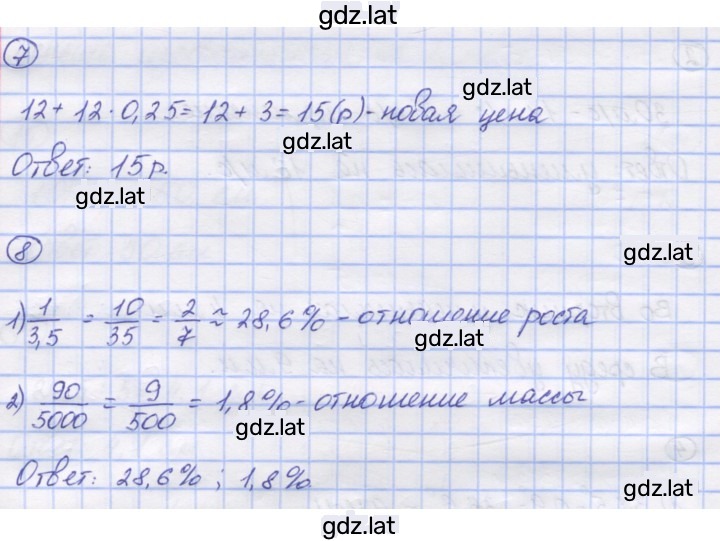 gdz.lat
7
gdz.lat
12 + 12 · 0,25 = 12 + 3 = 15(р) - новая цена
gdz.lat
Ответ: 15р.
gdz.lat
8
gdz.lat
1) 1/3,5 = 10/35 = 2/7 ≈ 28,6% - отношение роста
gdz.lat
2) 90/5000 = 9/500 = 1,8% - отношение массы
gdz.lat
Ответ: 28,6% ; 1,8%
gdz.lat
gdz.lat